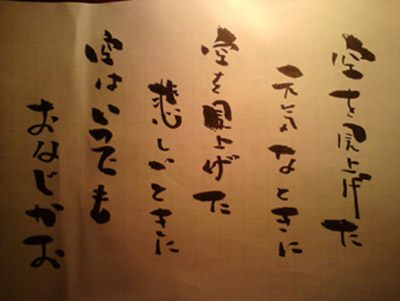 空を見上げた
天気なときに
空を見上げた
悲しいときに
空はいつでも
おなじかお